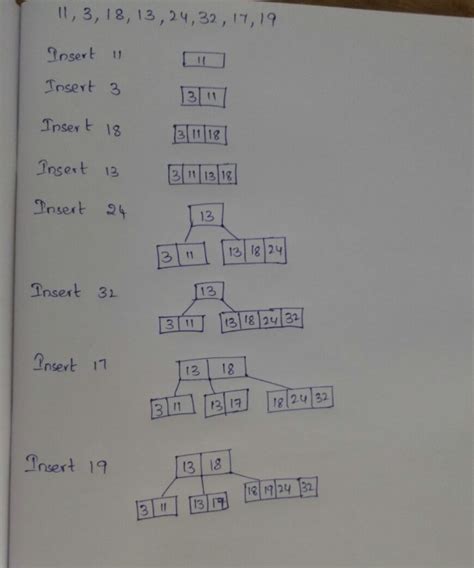 11, 3, 18, 13, 24, 32, 17, 19
Insert 11
11
Insert 3
3 11
Insert 18
3 11 18
Insert 13
3 11 13 18
Insert 24
13
3 11 13 18 24
Insert 32
13
3 11 13 18 24 32
Insert 17
13 18
3 11 13 17 18 24 32
Insert 19
13 18
3 11 13 17 18 19 24 32